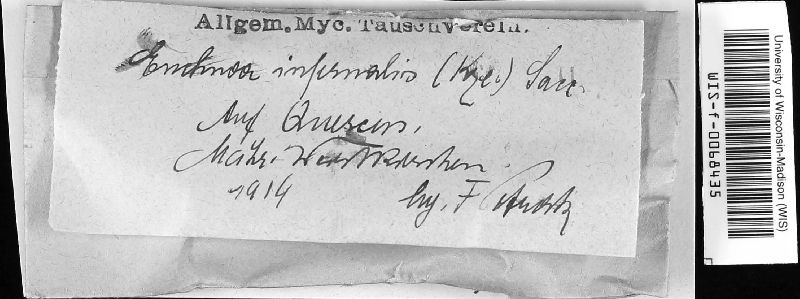 Allgem. Myc. Tauschverein.
Enchnoa infernalis (Kze.) Sacc.
Auf Quercus.
Mähr. Weisskirchen
1914 leg. F. Petrak
University of Wisconsin-Madison (WIS)
WIS-f-0068435